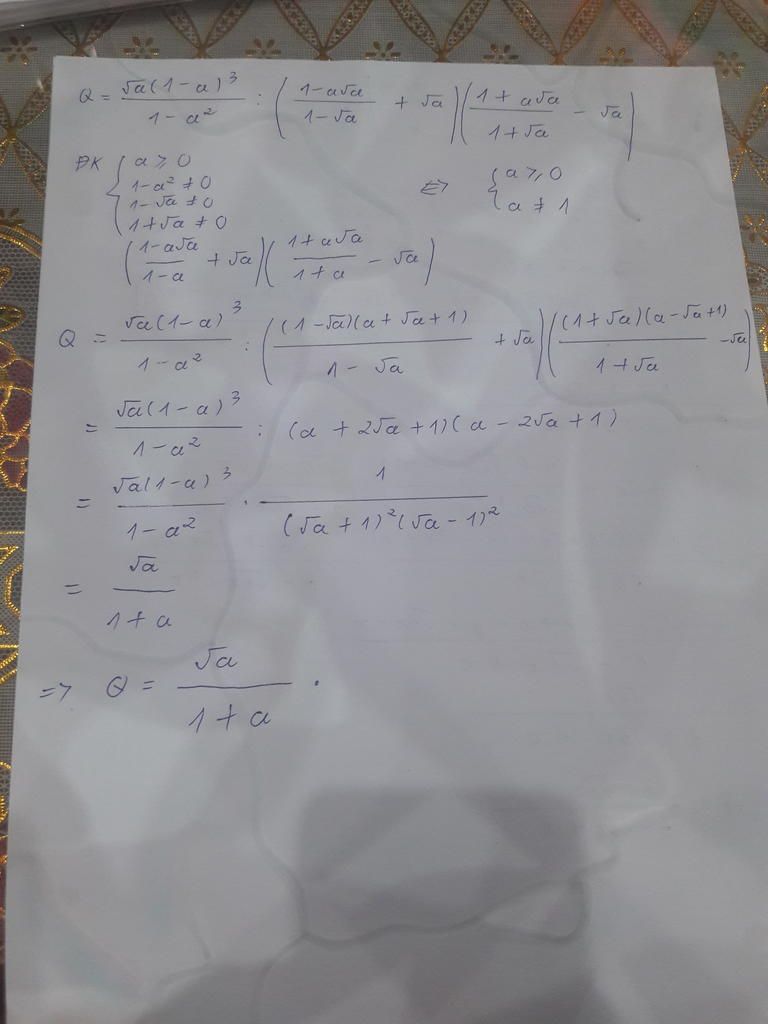 Q = √a(1-a)³ / 1-a² : ( 1-a√a / 1-√a + √a )( 1+a√a / 1+√a - √a )
ĐK { a ≥ 0
1-a² ≠ 0
1-√a ≠ 0
1+√a ≠ 0
⇔ { a ≥ 0
a ≠ 1
( 1-a√a / 1-a + √a )( 1+a√a / 1+a - √a )
Q = √a(1-a)³ / 1-a² : ( (1-√a)(a+√a+1) / 1-√a + √a )( (1+√a)(a-√a+1) / 1+√a - √a )
= √a(1-a)³ / 1-a² : (a+2√a+1)(a-2√a+1)
= √a(1-a)³ / 1-a² . 1 / (√a+1)²(√a-1)²
= √a / 1+a
=> Q = √a / 1+a .